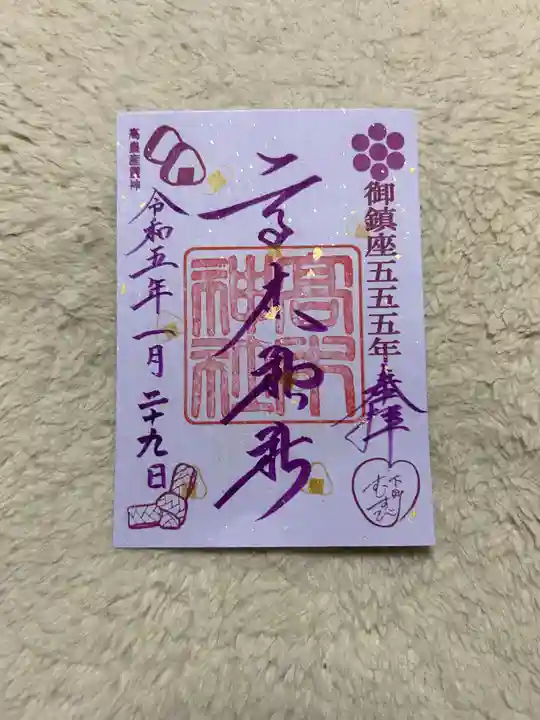 御鎮座五五五年
奉拝
下町
むすび
高木神社
高木神社
高皇産靈神
令和五年一月二十九日